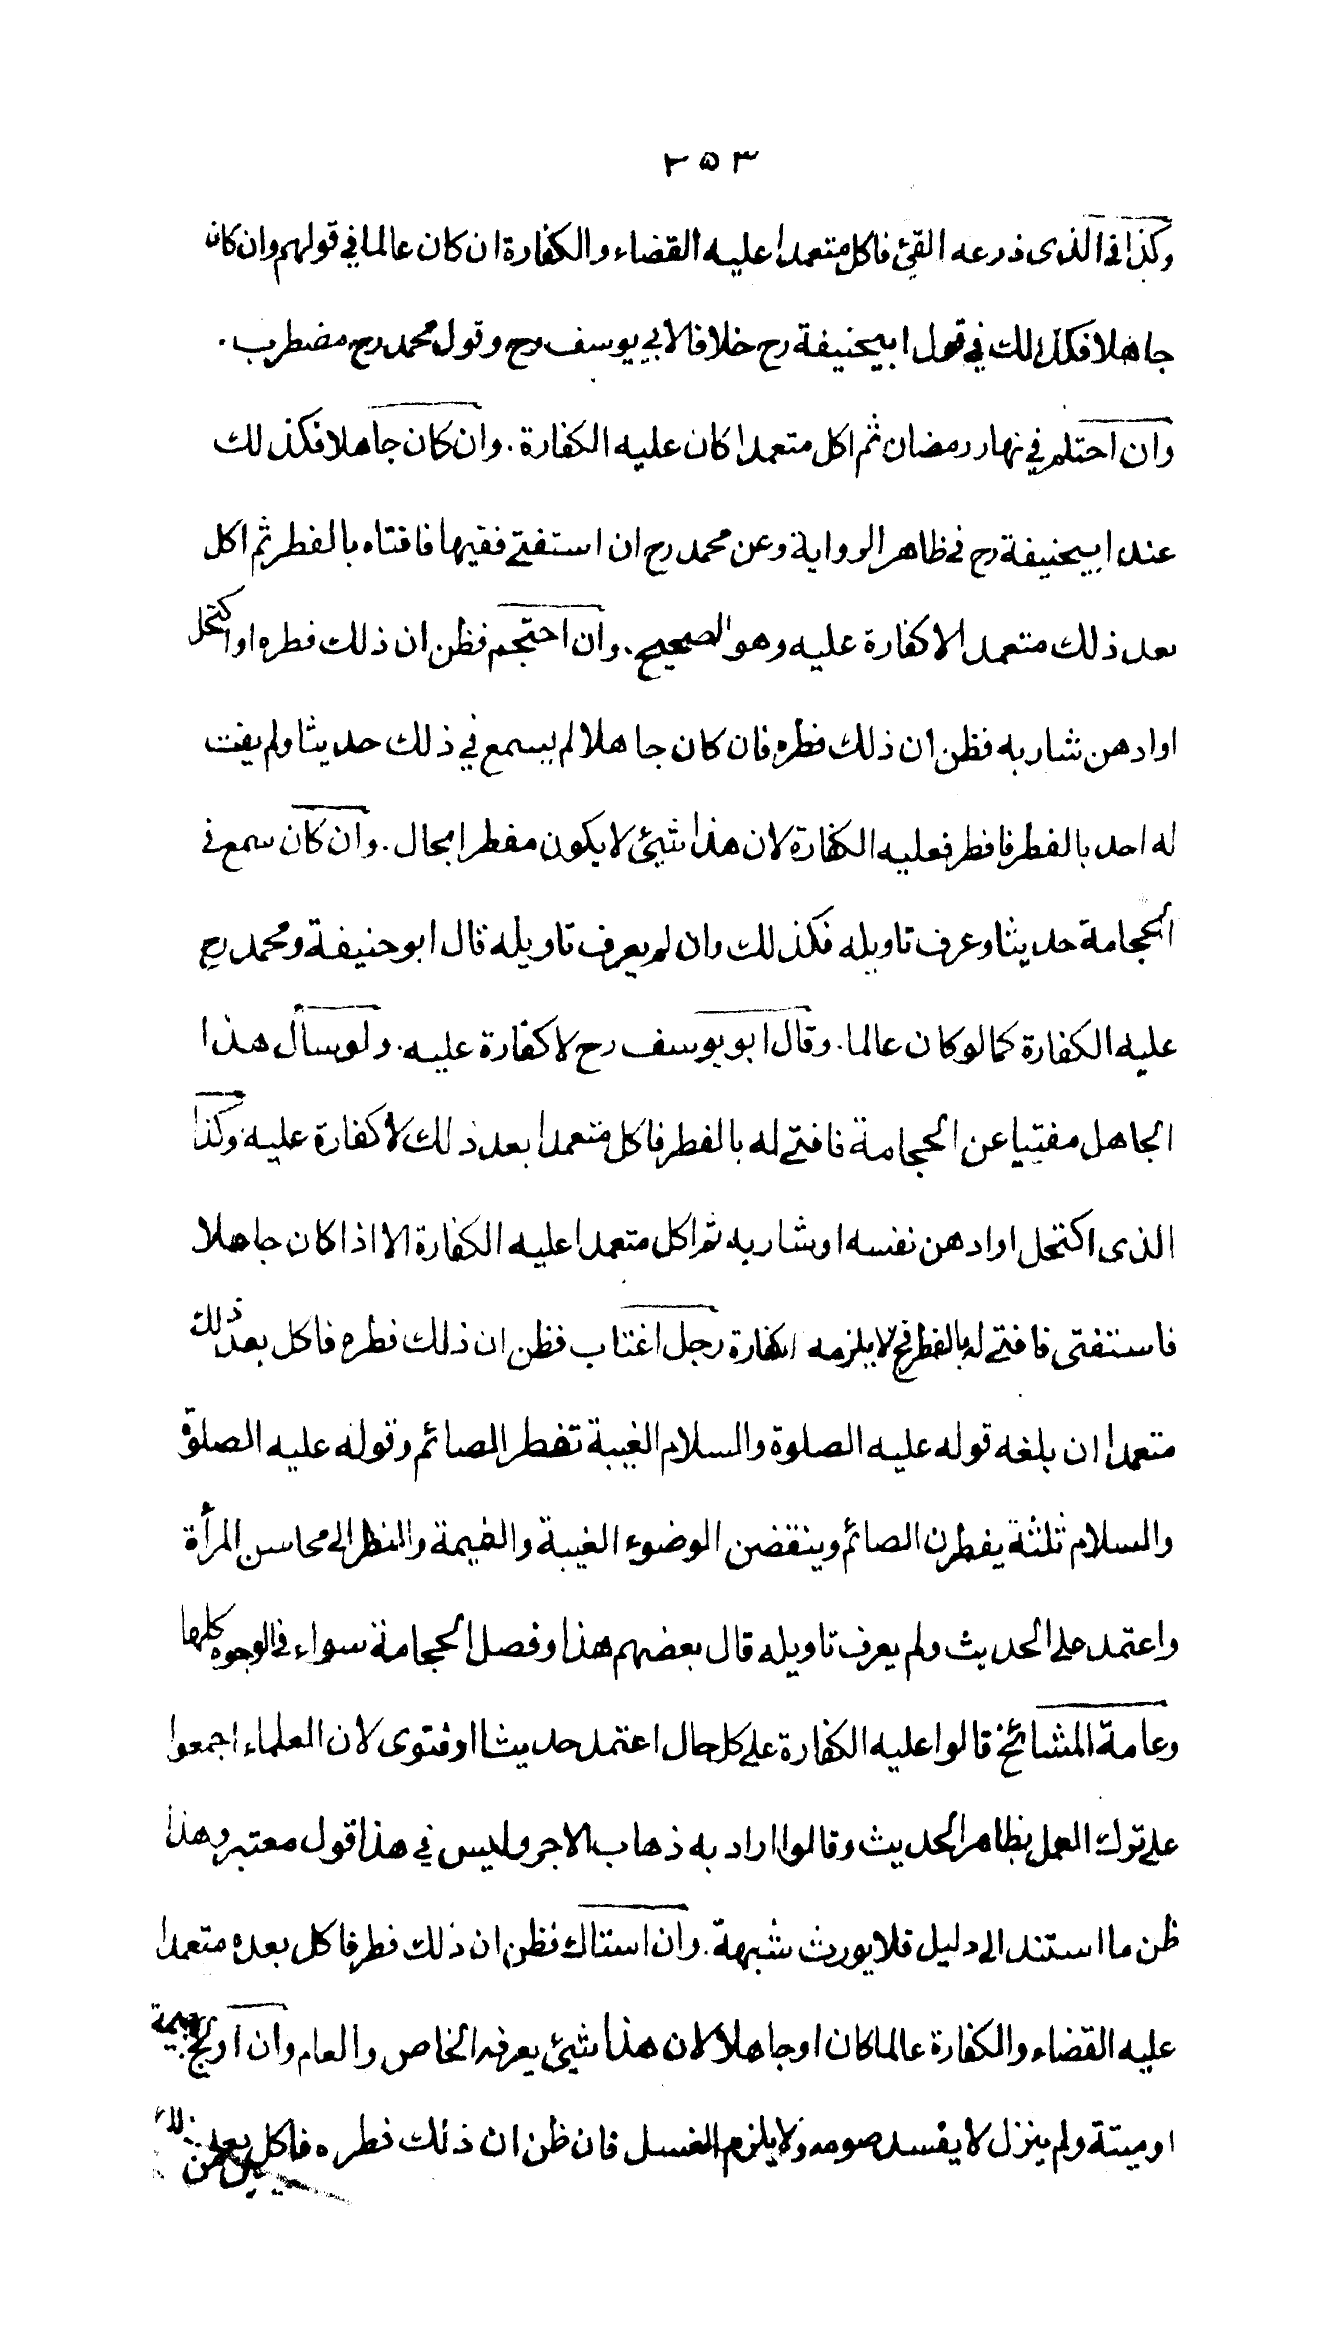 ٢٥٣
وكذا فى الذى ذرعه القئ فاكل متعمدا عليه القضاء والكفارة ان كان عالما في قولهم وان كان
جاهلا فكذلك في قول ابيحنيفة رح خلافا لابي يوسف رح وقول محمد رح مضطرب .
وان احتلم في نهار رمضان ثم اكل متعمدا كان عليه الكفارة . وان كان جاهلا فكذلك
عند ابيحنيفة رح في ظاهر الرواية وعن محمد رح ان استفتى فقيها فافتاه بالفطر ثم اكل
بعد ذلك متعمدا لا كفارة عليه وهو الصحيح . وان احتجم فظن ان ذلك فطره او اكتحل
او ادهن شاربه فظن ان ذلك فطره فان كان جاهلا لم يسمع في ذلك حديثا ولم يفت
له احد بالفطر فافطر فعليه الكفارة لان هذا شيئ لا يكون مفطرا بحال . وان كان سمع في
الحجامة حديثا وعرف تاويله فكذلك وان لم يعرف تاويله قال ابو حنيفة ومحمد رح
عليه الكفارة كما لو كان عالما . وقال ابو يوسف رح لا كفارة عليه . ولو سأل هذا
الجاهل مفتيا عن الحجامة فافتى له بالفطر فاكل متعمدا بعد ذلك لا كفارة عليه وكذا
الذى اكتحل او ادهن نفسه او شاربه ثم اكل متعمدا عليه الكفارة الا اذا كان جاهلا
فاستفتى فافتى له بالفطر فح لا يلزمه الكفارة رجل اغتاب فظن ان ذلك فطره فاكل بعد ذلك
متعمدا ان بلغه قوله عليه الصلوة والسلام الغيبة تفطر الصائم وقوله عليه الصلوة
والسلام ثلثة يفطرن الصائم وينقضن الوضوء الغيبة والنميمة والنظر الى محاسن المرأة
واعتمد على الحديث ولم يعرف تاويله قال بعضهم هذا وفصل الحجامة سواء في الوجوه كلها
وعامة المشائخ قالوا عليه الكفارة على كل حال اعتمد حديثا او فتوى لان العلماء اجمعوا
على ترك العمل بظاهر الحديث وقالوا اراد به ذهاب الاجر وليس في هذا قول معتبر وهذا
ظن ما استند الى دليل فلا يورث شبهة . وان استاك فظن ان ذلك فطر فاكل بعده متعمدا
عليه القضاء والكفارة عالما كان او جاهلا لان هذا شيئ يعرفه الخاص والعام وان اولج بهيمة
او ميتة ولم ينزل لا يفسد صومه ولا يلزم الغسل فان ظن ان ذلك فطره فاكل بعد ذلك